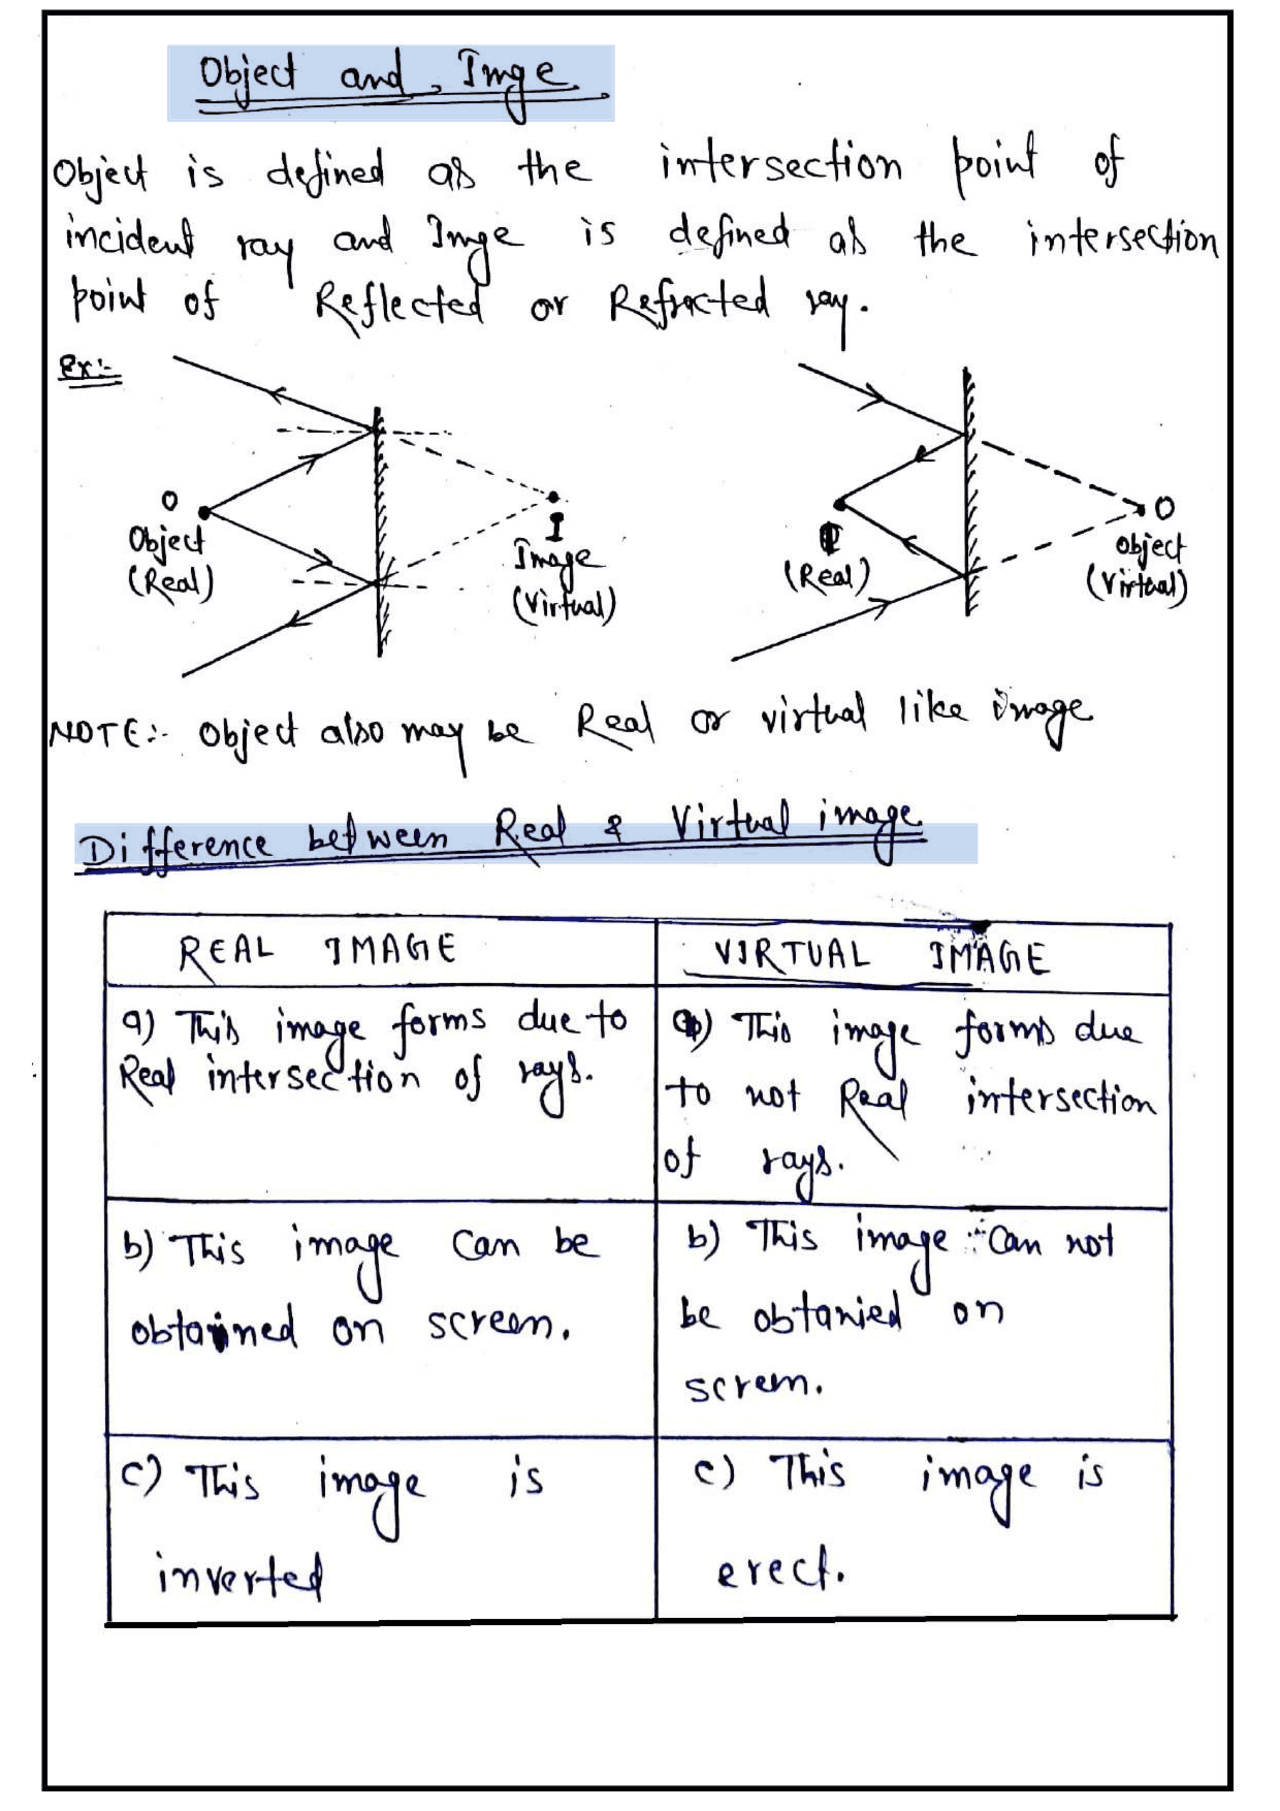 Object and Imge
Object is defined as the intersection point of
incident ray and Imge is defined as the intersection
point of Reflected or Refracted ray.
Ex:-
O
Object
(Real)
I
Image
(Virtual)
I
(Real)
O
object
(Virtual)
NOTE:- Object also may be Real or virtual like image
Difference between Real & Virtual image
REAL IMAGE
VIRTUAL IMAGE
a) This image forms due to
Real intersection of rays.
a) This image forms due
to not Real intersection
of rays.
b) This image can be
obtained on screen.
b) This image can not
be obtanied on
screen.
c) This image is
inverted
c) This image is
erect.